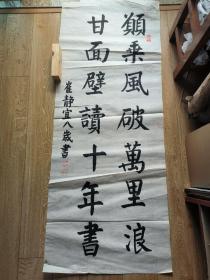 願乘風破萬里浪
甘面壁讀十年書
崔靜宜八歲書